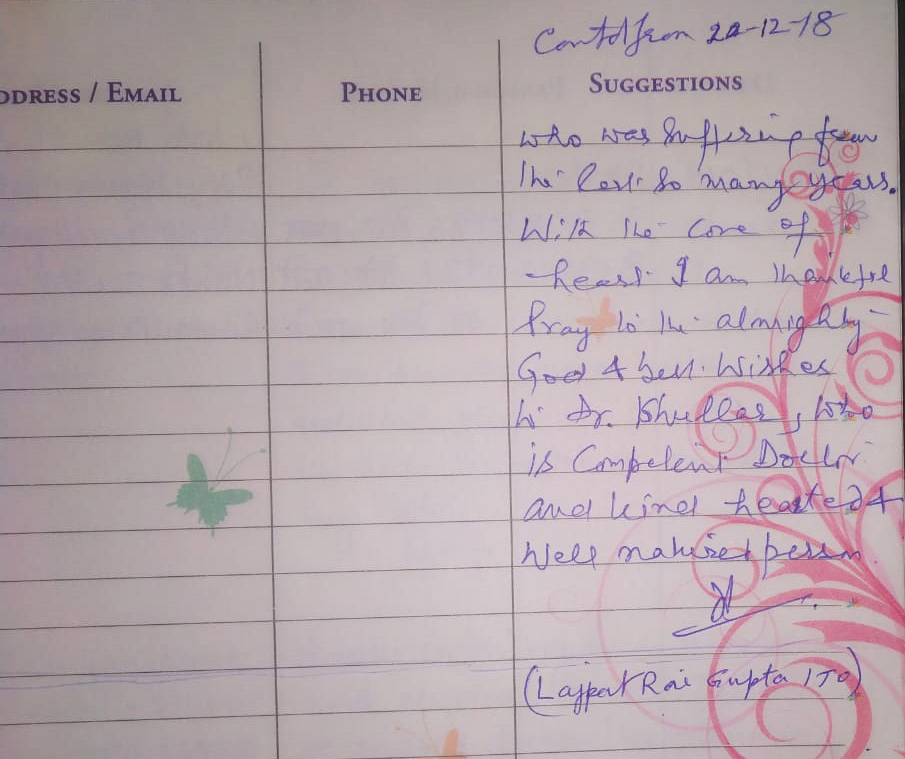 Contd from 22-12-18
DDRESS / EMAIL PHONE SUGGESTIONS
who was suffering from
the last so many years.
With the core of
heart I am thankful
Pray to the almighty
God & best wishes
to Dr. Bhullar, who
is Competent Doctor
and kind hearted &
well natured person
(Lajpat Rai Gupta ITO)